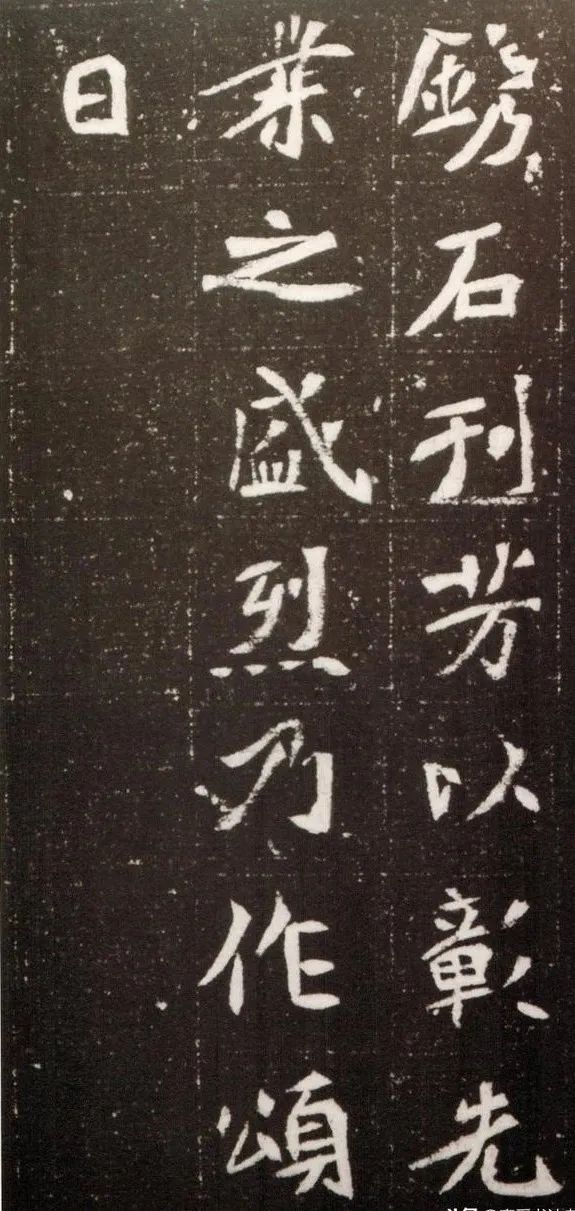 鐫石刊芳以彰先
業之盛烈乃作頌
曰